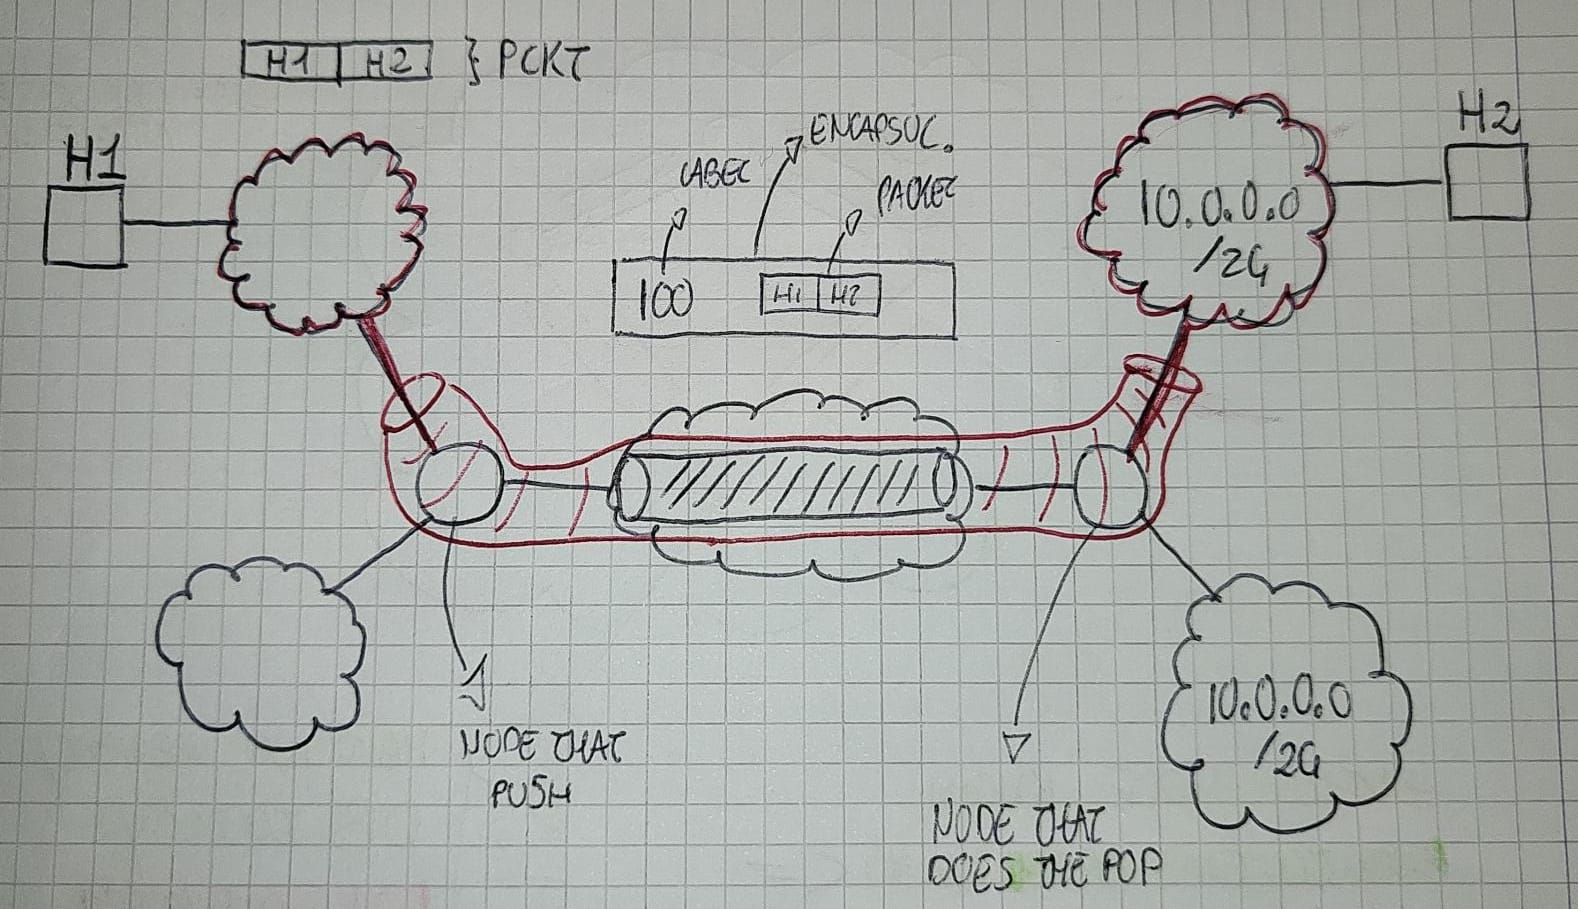 H1 H2 } PCKT
H1
H2
ENCAPSUL.
LABEL
PACKET
100 H1 H2
10.0.0.0
/24
10.0.0.0
/24
NODE THAT
PUSH
NODE THAT
DOES THE POP